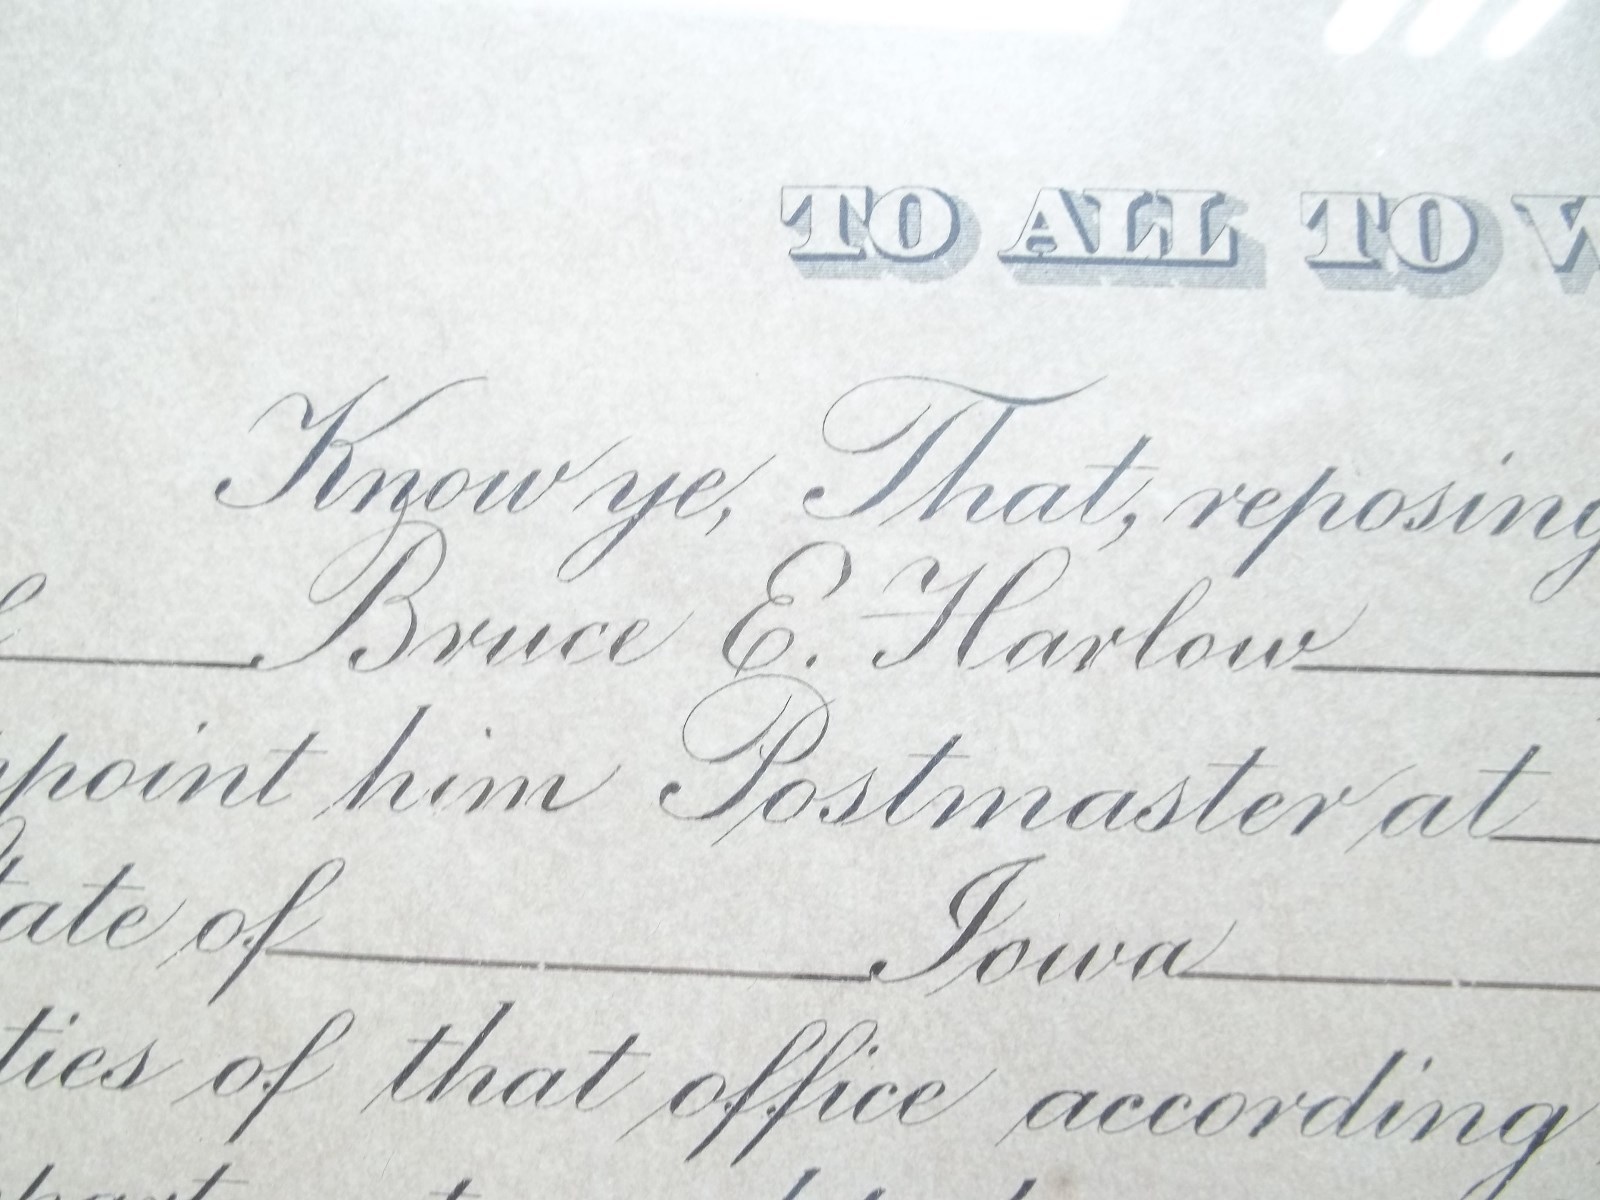 TO ALL TO W
Know ye, That, reposing
Bruce E. Harlow
ppoint him Postmaster at
tate of Iowa
ties of that office according